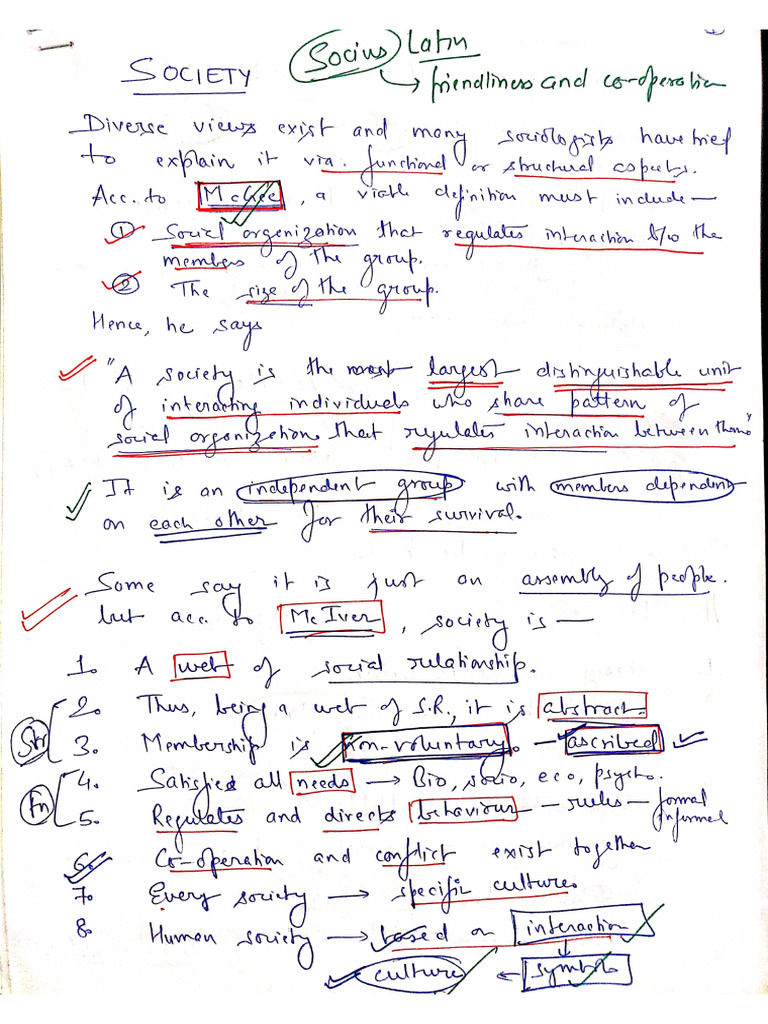 SOCIETY
Socius Latin
→ friendliness and co-operation
Diverse views exist and many sociologists have tried
to explain it via. functional or structural aspects.
Acc. to McGee, a viable definition must include —
① Social organization that regulates interaction b/w the
members of the group.
② The size of the group.
Hence, he says
"A society is the largest distinguishable unit
of interacting individuals who share pattern of
social organization that regulates interaction between them"
It is an independent group with members dependent
on each other for their survival.
Some say it is just an assembly of people.
but acc. to McIver, society is —
1. A web of social relationship.
2. Thus, being a web of S.R., it is abstract.
Str
3. Membership is non-voluntary. — ascribed
4. Satisfied all needs → Bio, socio, eco, psycho.
Fn
5. Regulates and directs behaviour — rules — formal
informal
6. Co-operation and conflict exist together
7. Every society → specific culture.
8. Human society → based on interaction
↓
culture ← symbols